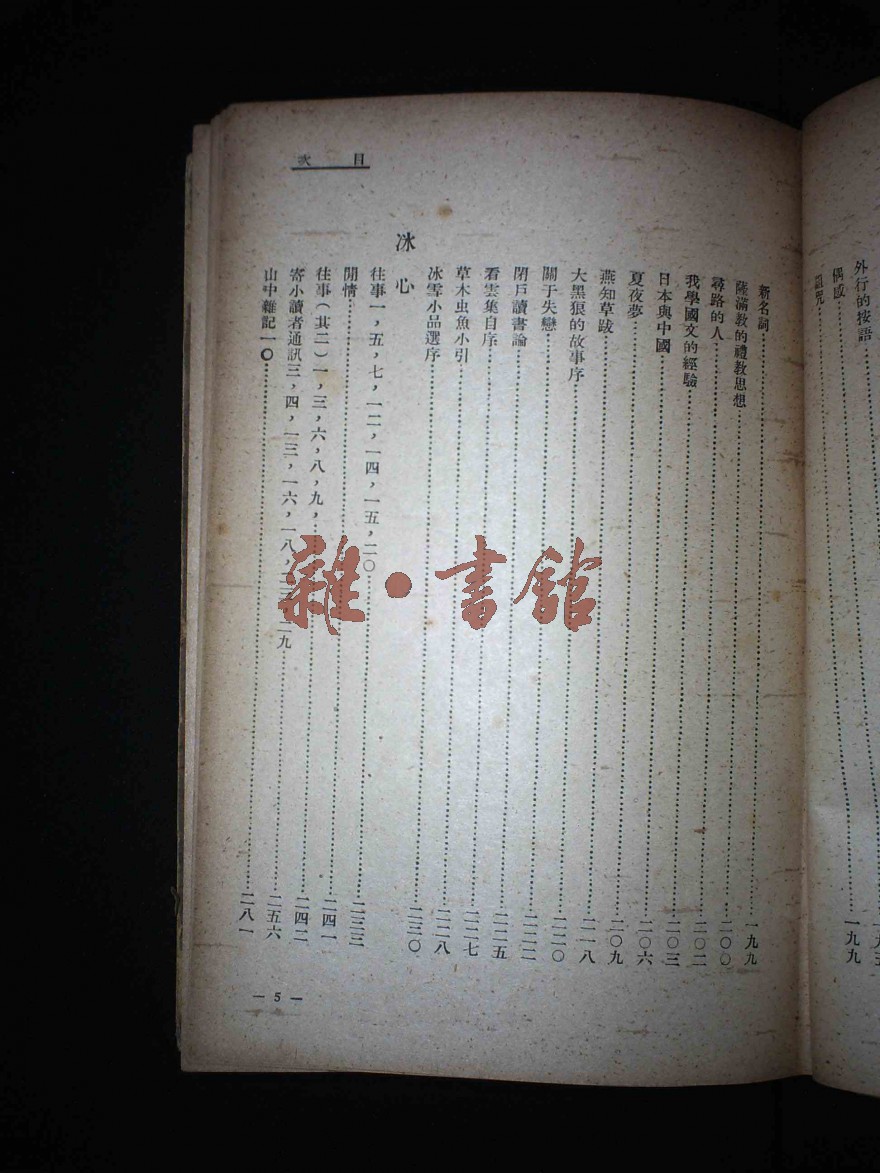 外行的按語
偶感
詛咒 一九九
目次
新名詞 一九九
薩滿教的禮教思想 二〇〇
尋路的人 二〇二
我學國文的經驗 二〇三
日本與中國 二〇六
夏夜夢 二〇九
燕知草跋 二一八
大黑狼的故事序 二二〇
關于失戀 二二二
閉戶讀書論 二二五
看雲集自序 二二七
草木虫魚小引 二二八
冰雪小品選序 二三〇
冰心
往事一,五,七,一二,一四,一五,二〇 二三三
閒情 二四一
往事(其二)一,三,六,八,九, 二四二
寄小讀者通訊三,四,一三,一六,一八, 二九 二五六
山中雜記一〇 二八一
— 5 —
雜·書館